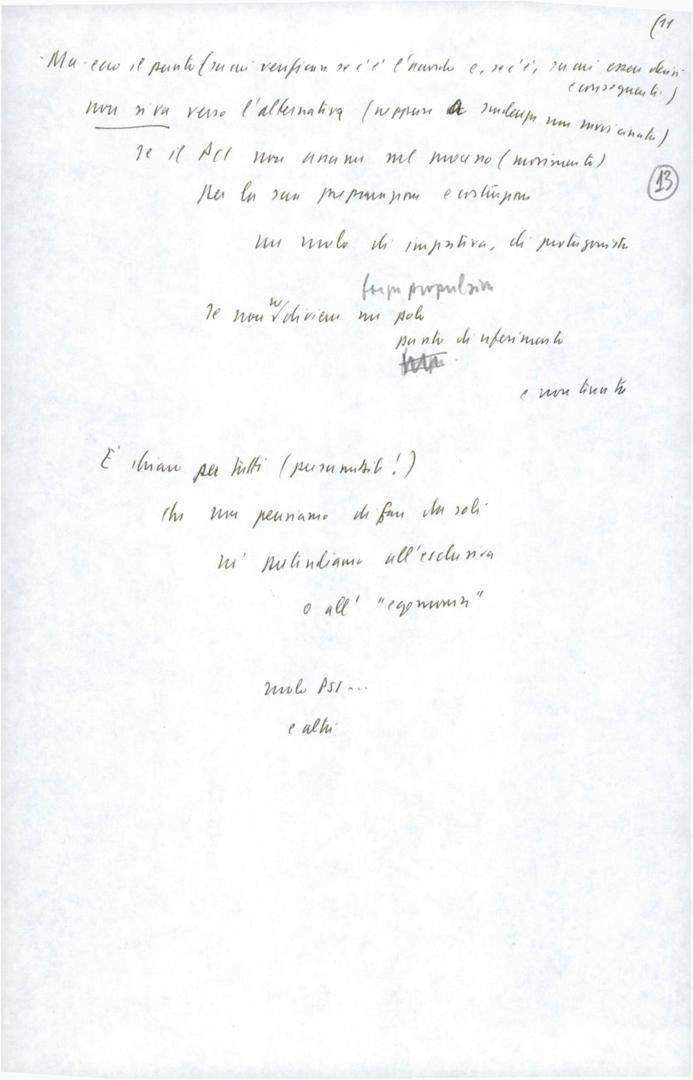 (11
Ma ecco il punto (su cui verificare se c'è l'accordo e, se c'è, su cui essere decisi
e conseguenti)
non si va verso l'alternativa (neppure a scadenza non ravvicinata)
se il PCI non assume nel processo (movimento)
13
per la sua preparazione e costruzione
un ruolo di iniziativa, di protagonista
forza propulsiva
se non diviene un polo
punto di riferimento
e non
È chiaro per tutti (presumibile!)
che non pensiamo di fare da soli
né pretendiamo all'esclusiva
o all' "egemonia"
ruolo PSI...
e altri